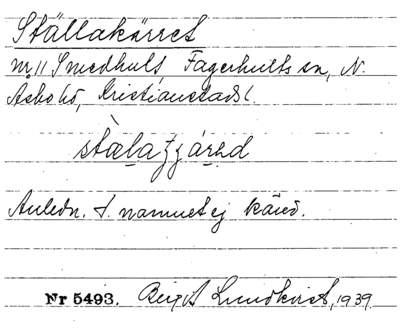 Ställakärret
nr 11 Smedhult, Fagerhults sn, N.
Åsbo hd, Kristianstads l.
Anledn. t. namnet ej känd.
Nr 5493. Birgit Lundkvist, 1939.